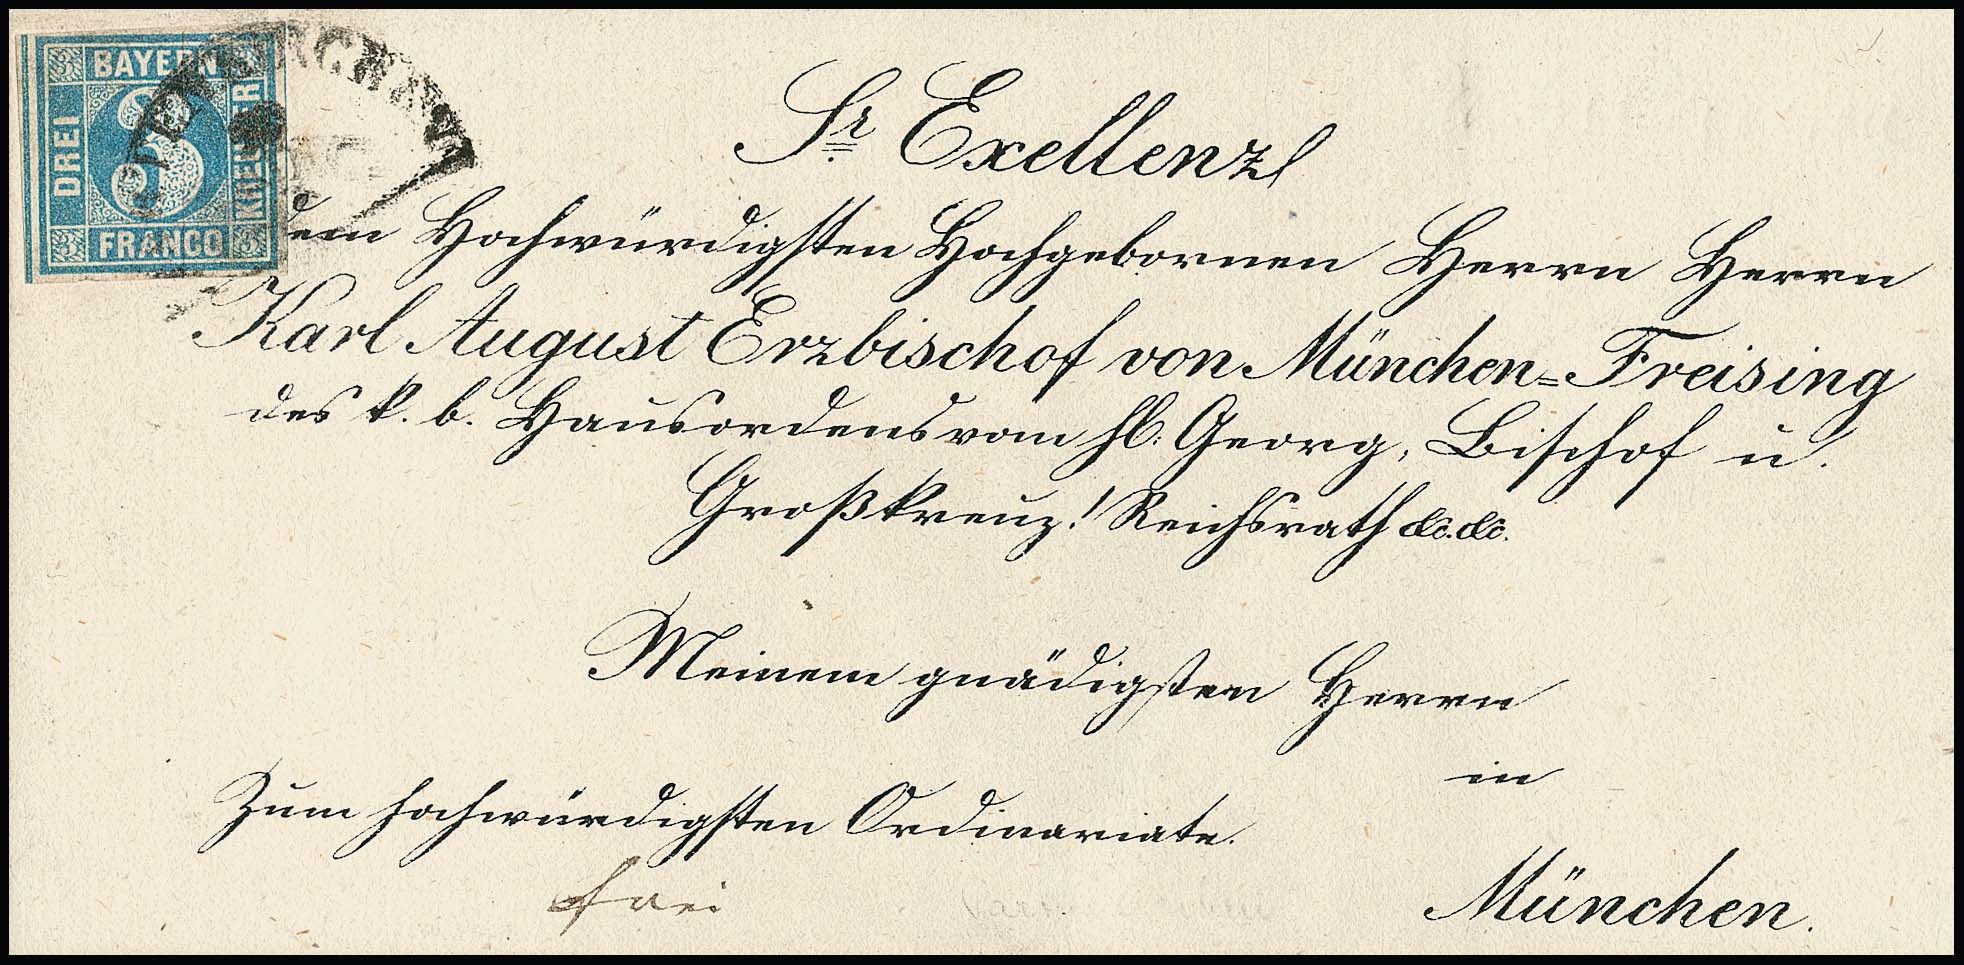 BAYERN
DREI
KREUZER
FRANCO
3
3
3
3
3
Sr. Exellenz
dem Hochwürdigsten Hochgebornen Herrn Herrn
Karl August Erzbischof von München=Freising
des k. b. Hausordens vom hl. Georg, Bischof u.
Großkreuz! Reichsrath &c. &c.
Meinem gnädigsten Herrn
in
Zum hochwürdigsten Ordinariate.
frei
München.